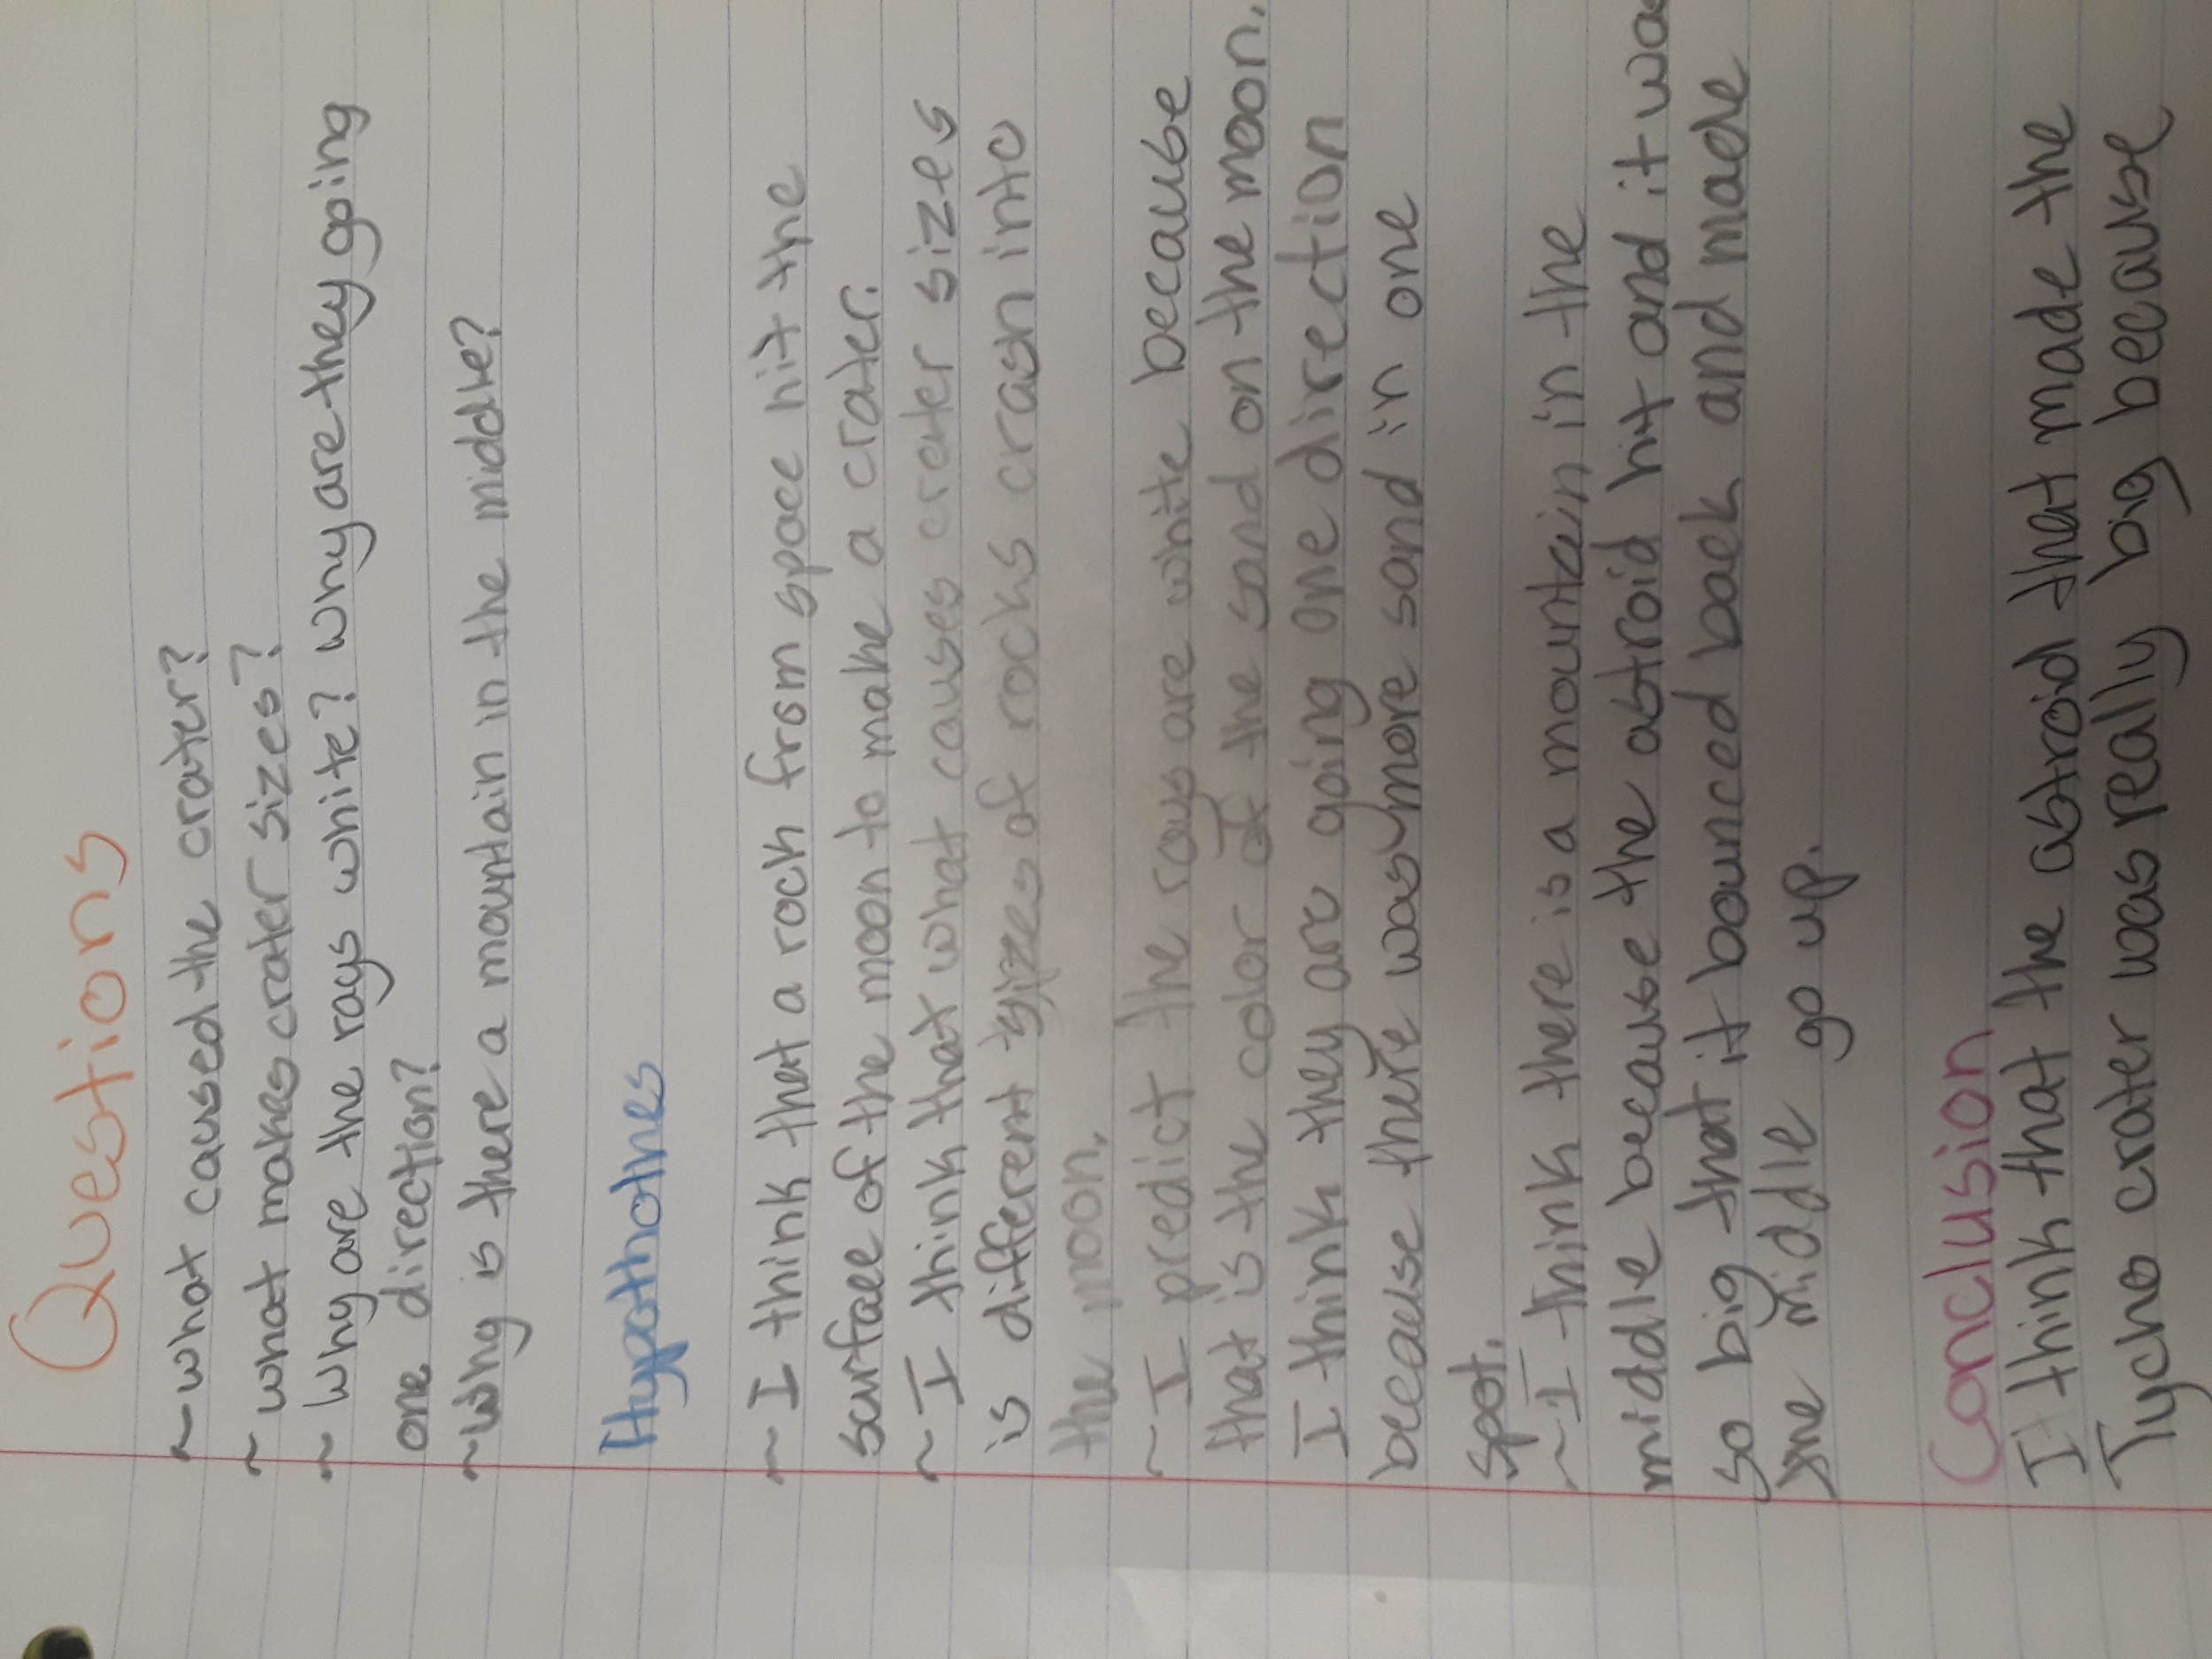 Questions
~what caused the crater?
~what makes crater sizes?
~Why are the rays white? Why are they going
one direction?
~Why is there a mountain in the middle?
Hypothothes
~I think that a rock from space hit the
surface of the moon to make a crater.
~I think that what causes crater sizes
is different sizes of rocks crash into
the moon.
~I predict the rays are white because
that is the color of the sand on the moon.
I think they are going one direction
because there was more sand in one
spot.
~I think there is a mountain in the
middle because the astroid hit and it wa
so big that it bounced back and made
the middle go up.
Conclusion
I think that the astroid that made the
Tycho crater was really big because